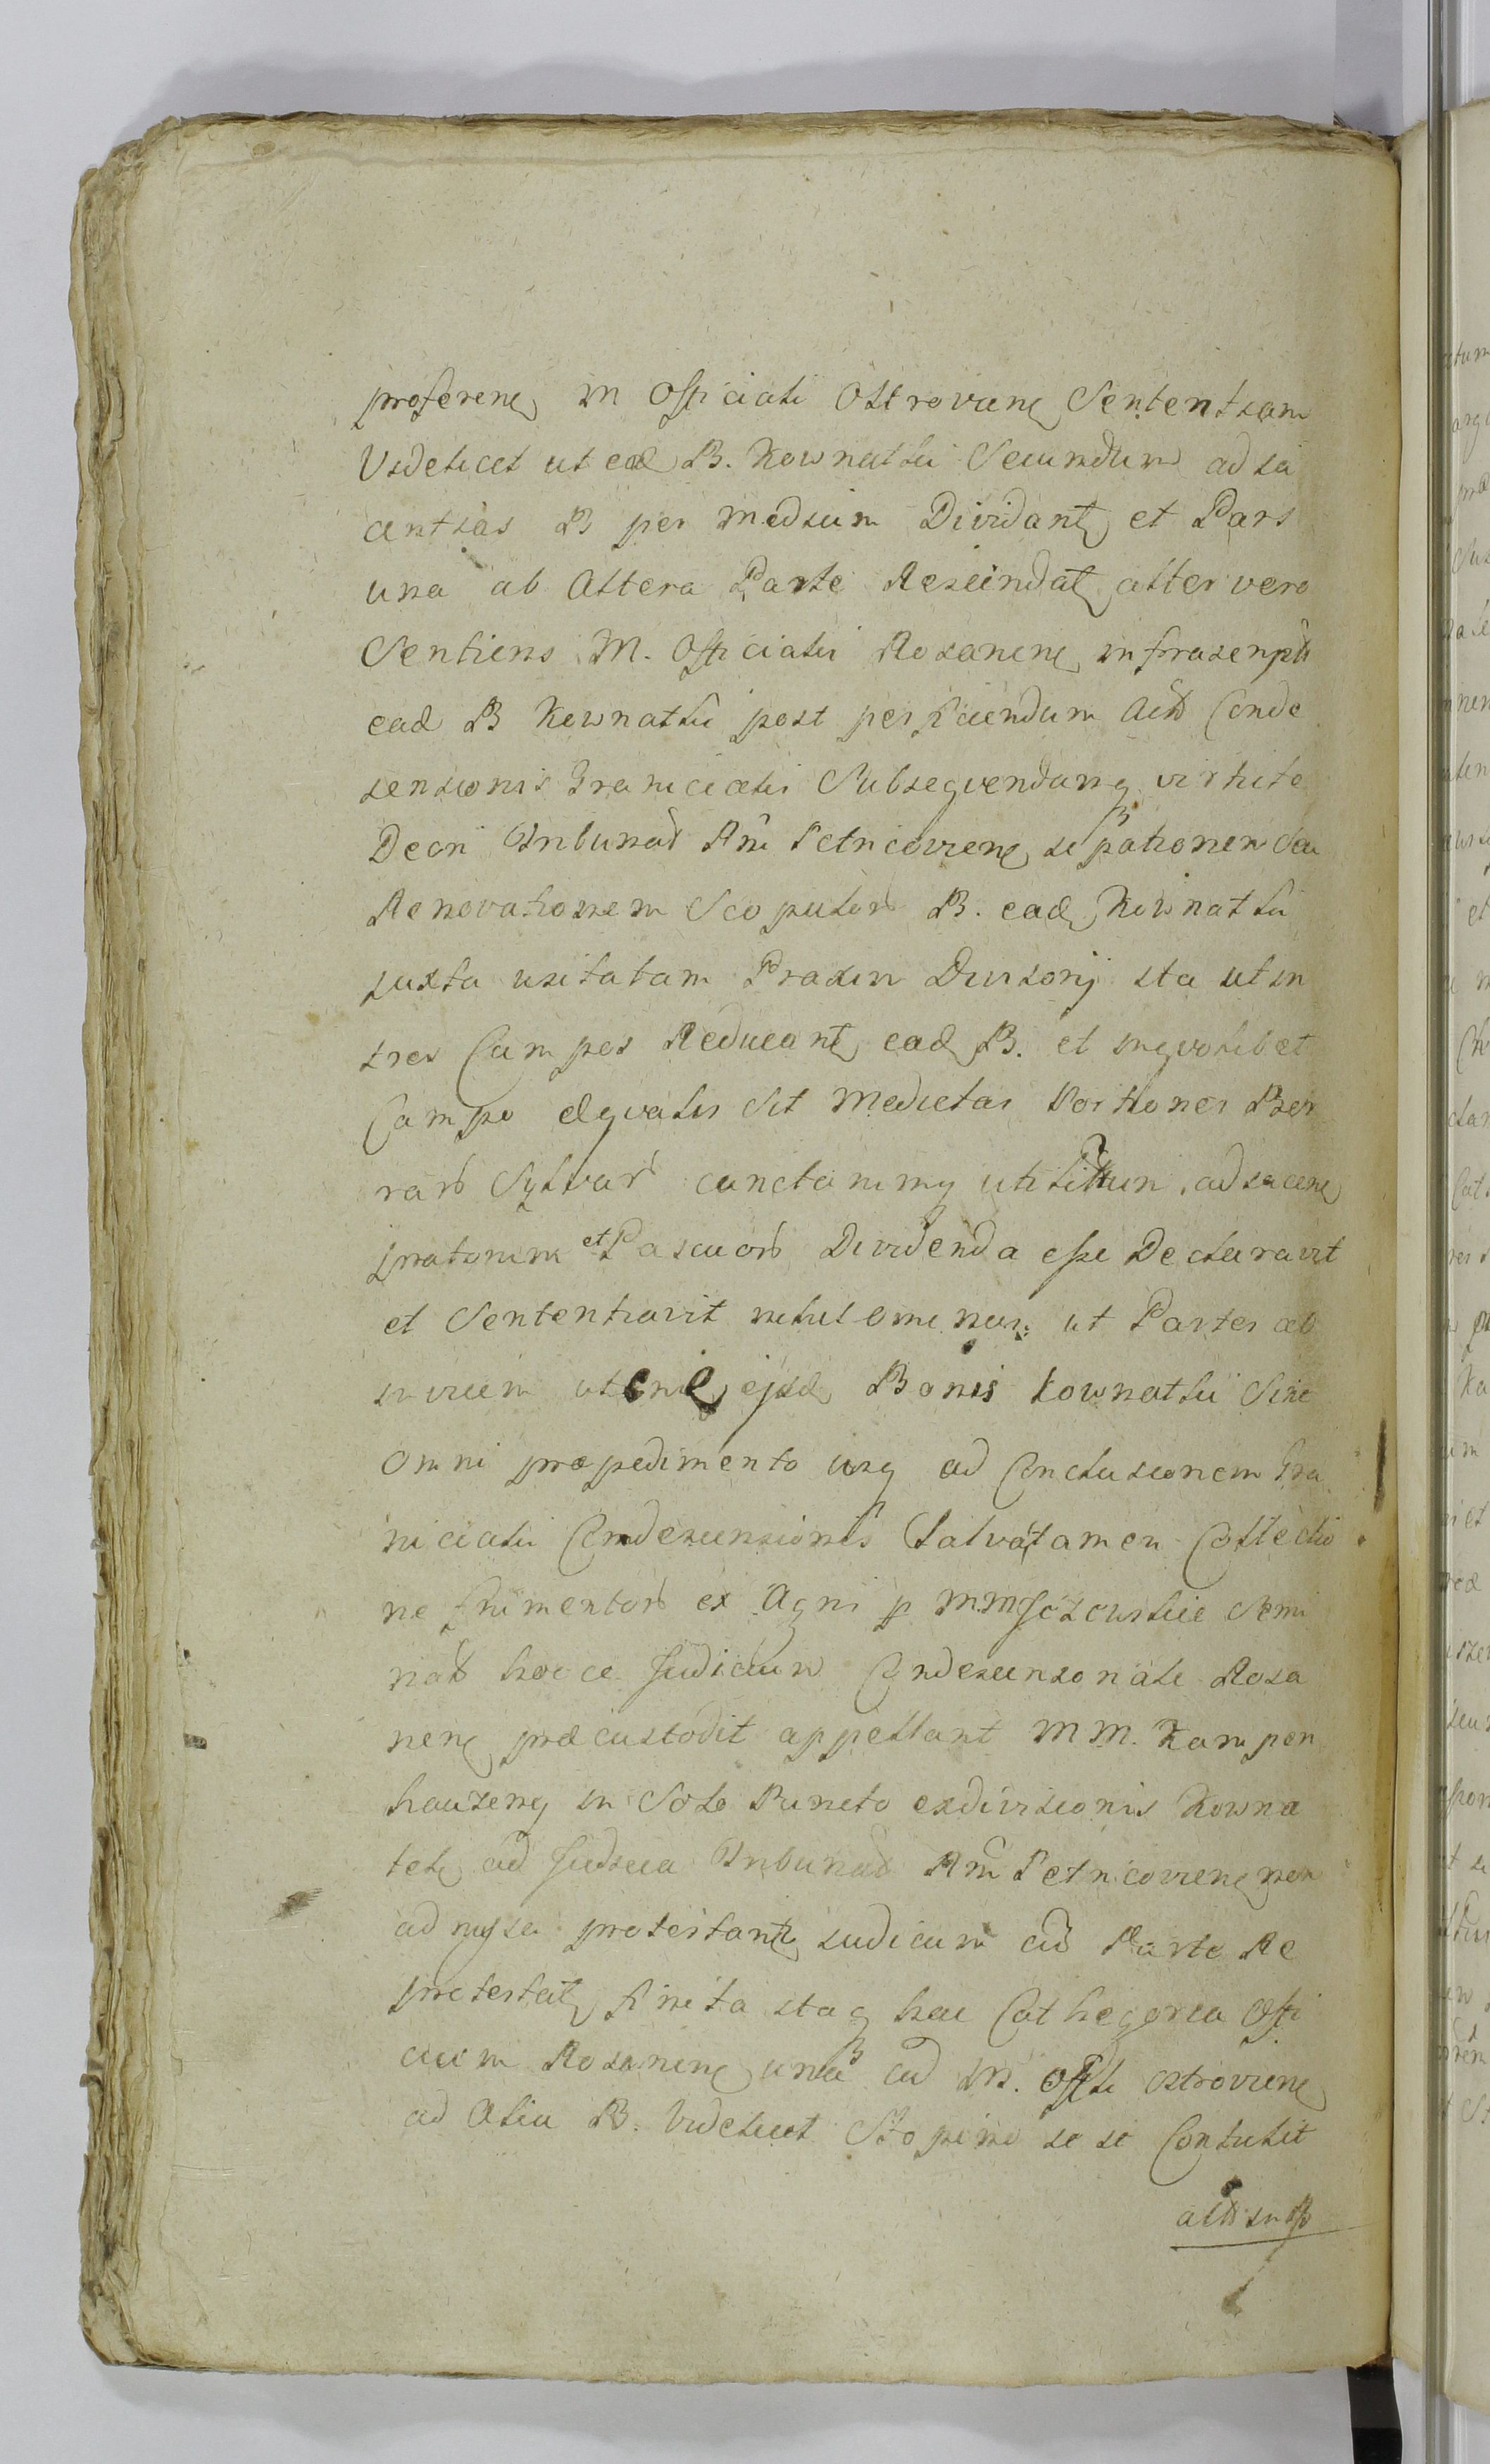 proferenę M Officiali Ostrovienę Sententiam
Videlicet ut ead B. Kownatki Secundum adja
centias B per medium Dividantę et Pars
una ab Altera Parte Rescindatę alter vero
Sentiens M. Officialis Rosanenę infrascripti
ead B Kownatki post perficiendum Condę
sensionis Graniciales Subsequendumq virtute
Decri Tribunal Petricovienę separationem seu
Renovationem Scopulor B. ead Kownatki
juxta usitatam Praxin Divisorij ita ut in
tres Campos Reducantę ead B. et inqvolibet
Campo æqvalis sit Medietas Portiones
rar Sylvar adjacenę
pratorum et Pascuor Dividenda esse Declaravit
et Sententiavit nihilominus ut Partes ab
invicem ejsd Bonis Kownatki Sine
Omni præpedimento usq ad Conclusionem Gra
nicialis Condescensionis Salva tamen Collectio
ne frumentor ex Agris p MM Semi
nat hocce Judicium Condescensionale Rosa
nenę præcustodit appellant MM. Kampen
hauzeny in Solo Puncto exdivisionis Kowna
tek ad Judicia Tribunal Petricovienę non
admissa protestantę judicium ad Parte Re
protestatę finita itaq hac Cathegoria Offi
cium Rosanenę una cu M. Offli Ostrovienę
ad Alia B. Videlicet Stopino se se Contulit